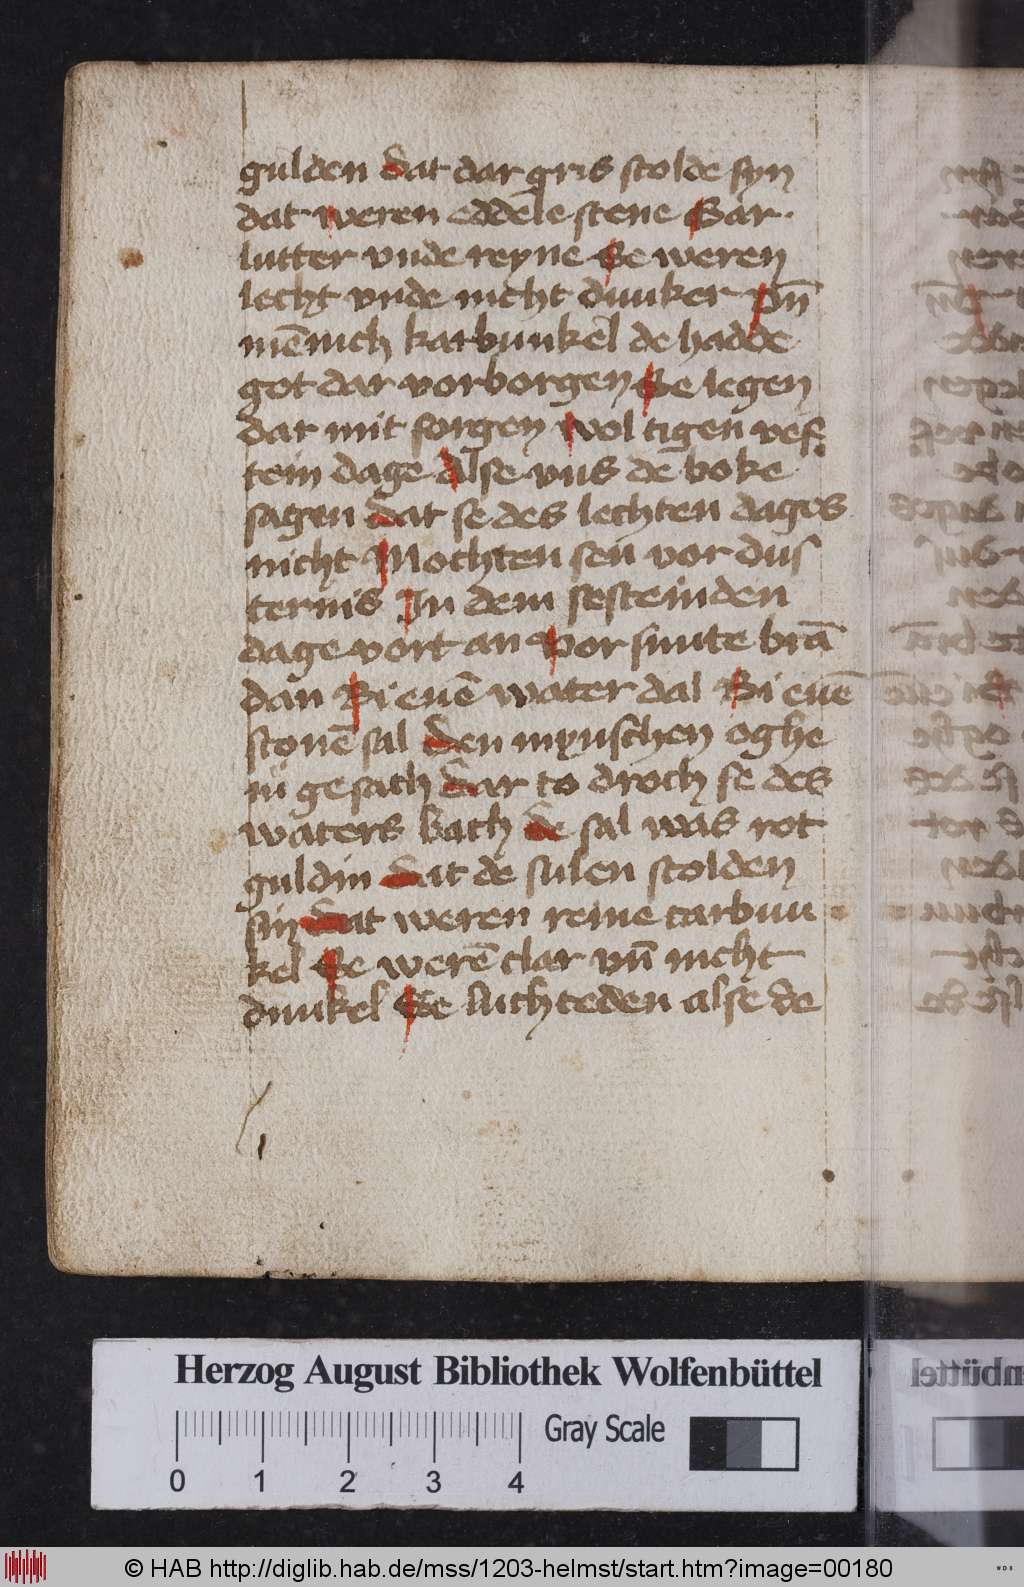 gulden dat dar gris scolde syn
dat weren eddele stene Gar
lutter vnde reyne Se weren
lecht vnde nicht dunker vn̄
mēnich karbunkel de hadde
got dar vorborgen Se legen
dar mit sorgen wol tigen vef
tein dage Alse vns de boke
sagen dat se des lechten dages
nicht Mochten sen vor dus
ternis In dem sesteinden
dage vort an Vor sunte brā
dan Bi enē water dal Bi enē
sconē sal den mynschen oghe
ni gesach dar to droch se des
waters bach de sal was rot
guldin dat de sulen scolden
sin dat weren reine carbun
kel Se werē clar vn̄ nicht
dunkel Se luchteden alse de
Herzog August Bibliothek Wolfenbüttel
Gray Scale
0 1 2 3 4
© HAB http://diglib.hab.de/mss/1203-helmst/start.htm?image=00180